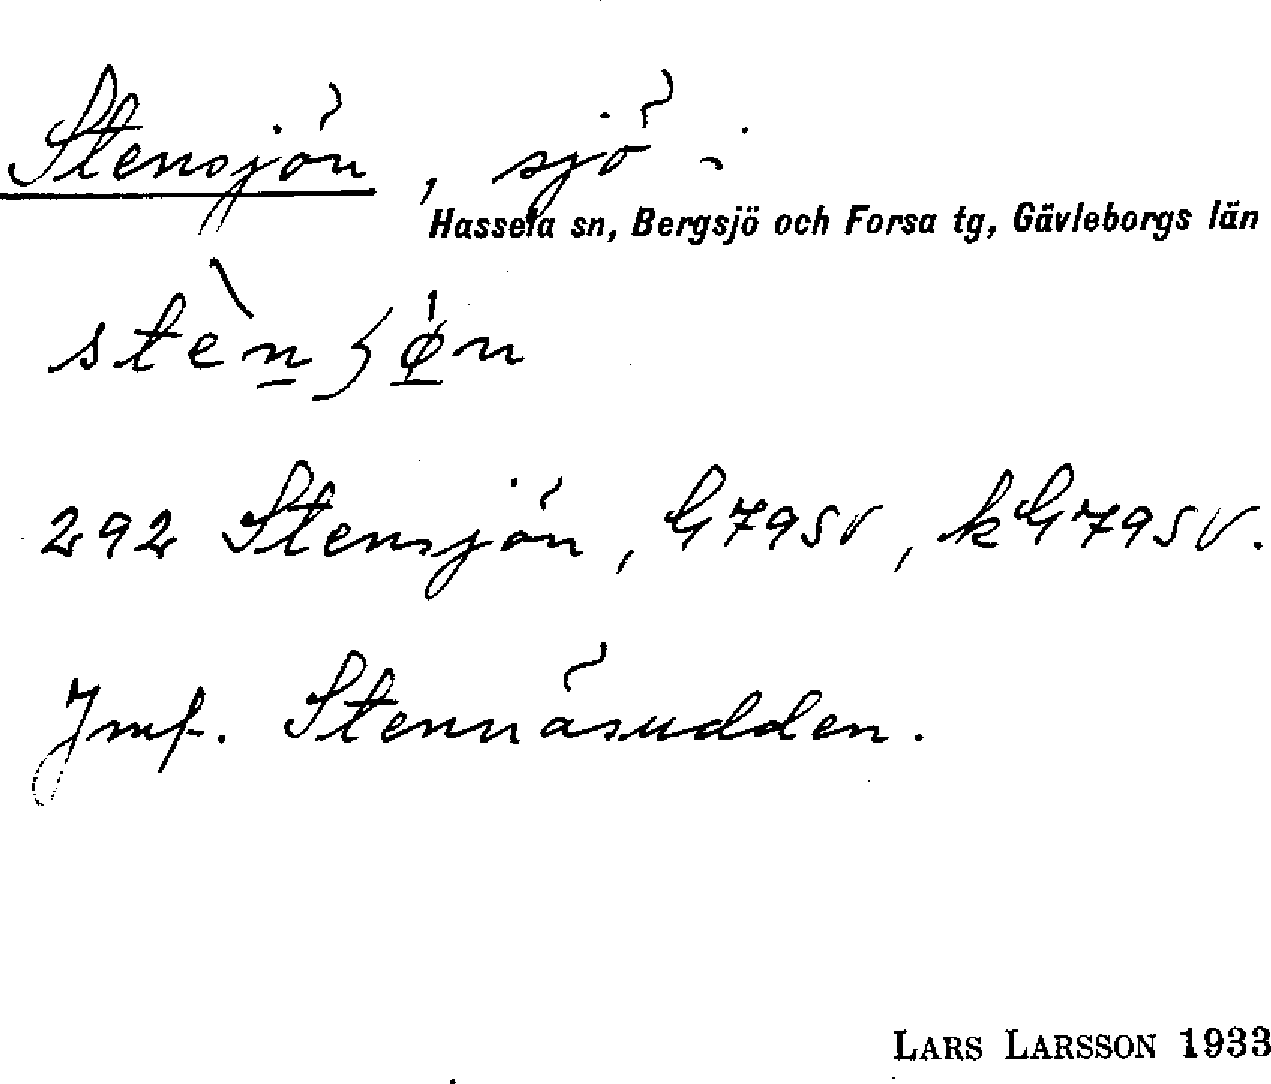 Stensjön, sjö i
Hassela sn, Bergsjö och Forsa tg, Gävleborgs län
292 Stensjön, G79SV, kG79SV.
Jmf. Stennäsudden.
LARS LARSSON 1933